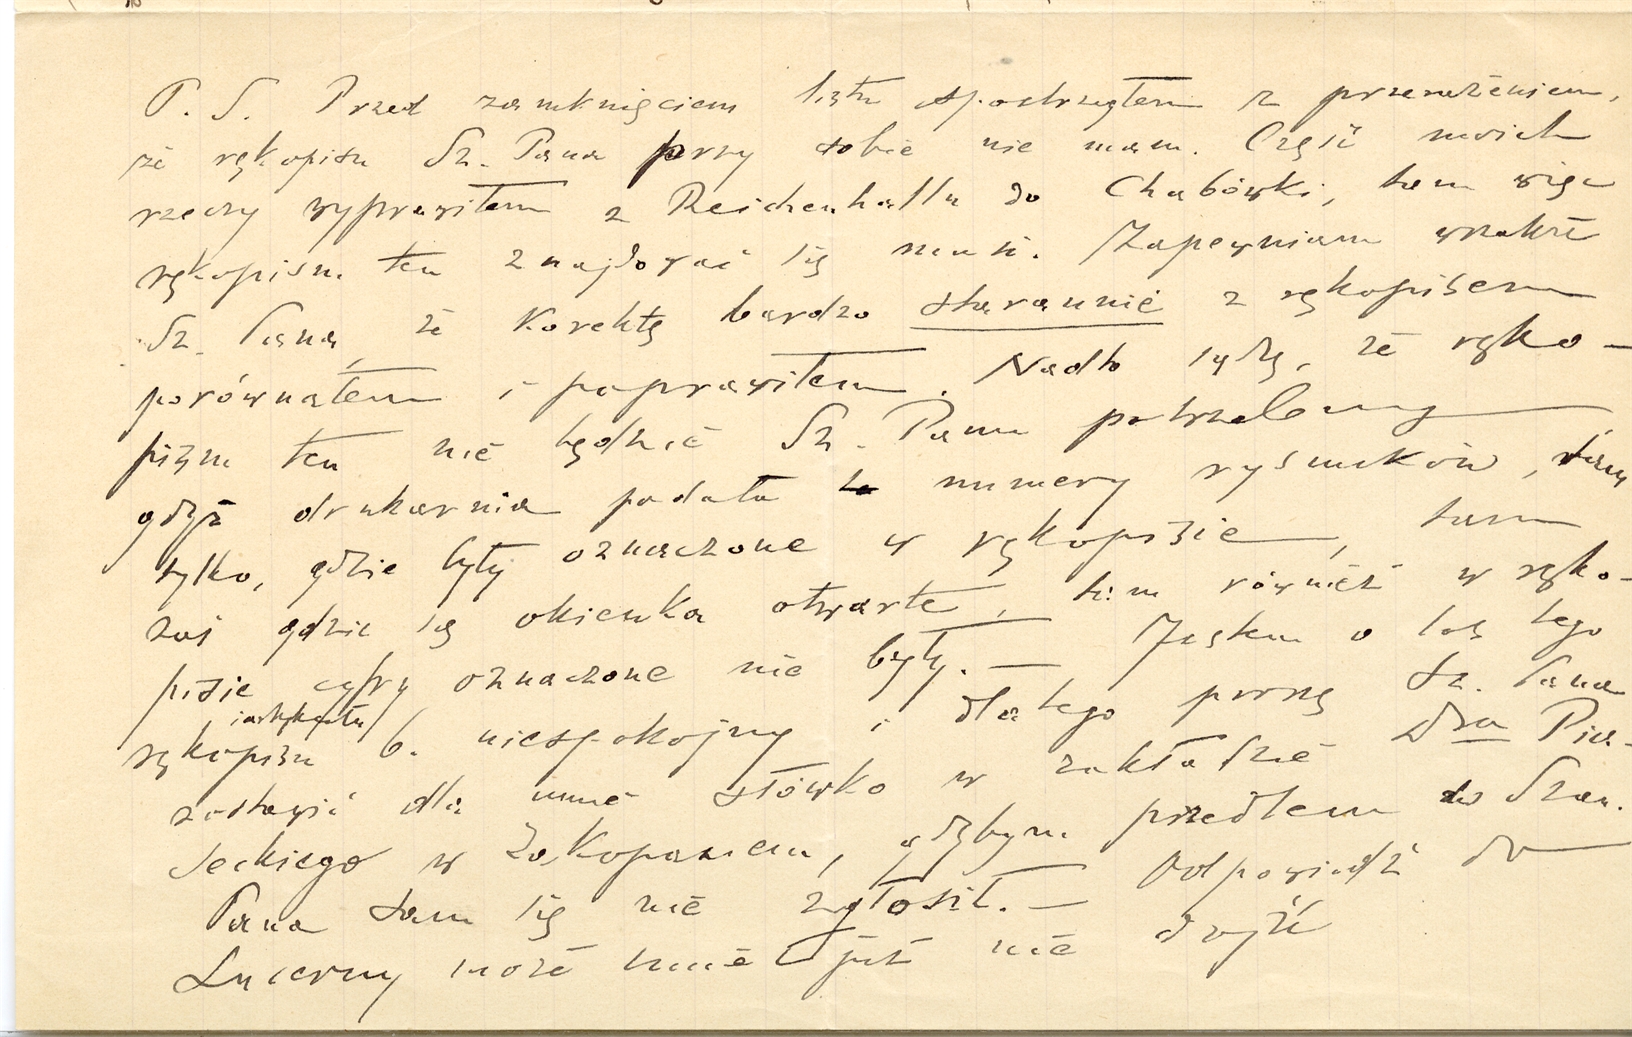 P. S. Przed zamknięciem listu spostrzegłem z przerażeniem,
że rękopisu Sz. Pana przy sobie nie mam. Część moich
rzeczy wyprawiłem z Reichenhallu do Chabówki, tam więc
rękopism ten znajdować się musi. Zapewniam wszakże
Sz. Pana, że korektę bardzo starannie z rękopisem
porównałem i poprawiłem. Nadto sądzę, że ręko-
pism ten nie będzie Sz. Panu potrzebny
gdyż drukarnia podała numery rysunków, tam
tylko, gdzie były oznaczone w rękopisie, tam
zaś gdzie są okienka otwarte, tam również w ręko-
pisie cyfry oznaczone nie były. — Jestem o los tego
rękopisu i artykułu b. niespokojny i dlatego proszę Sz. Pana
zostawić dla mnie słówko w zakładzie Dra Pia-
seckiego w Zakopanem, gdybym przedtem do Szan.
Pana sam się nie zgłosił. — Odpowiedź do
Lucerny może mnie już nie dojść